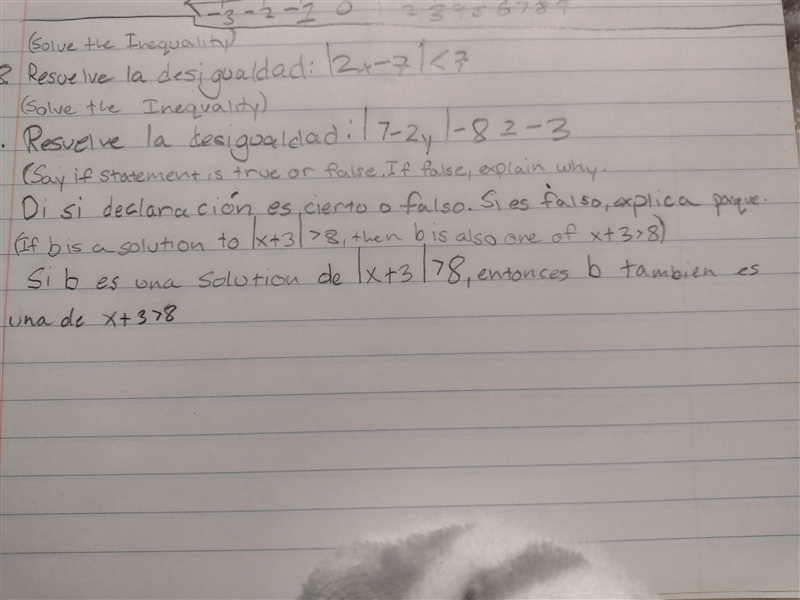 -3 -2 -1 0 2 3 4 5 6 7 8 9
(Solve the Inequality)
Resuelve la desigualdad: |2x-7|<7
(Solve the Inequality)
. Resuelve la desigualdad: |7-2y|-8≥-3
(Say if statement is true or false. If false, explain why.
Di si declaración es cierto o falso. Si es falso, explica porque.
(If b is a solution to |x+3|>8, then b is also one of x+3>8)
Si b es una solution de |x+3|>8, entonces b tambien es
una de x+3>8